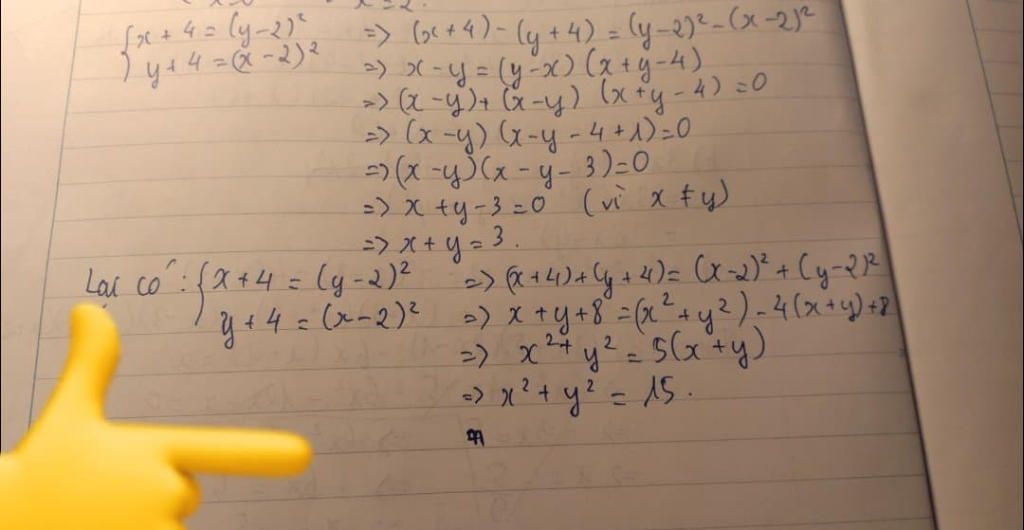 x = 2.
{ x + 4 = (y-2)² => (x+4) - (y+4) = (y-2)² - (x-2)²
y + 4 = (x-2)² => x - y = (y-x) (x+y-4)
=> (x-y) + (x-y) (x+y-4) = 0
=> (x-y) (x-y-4+1) = 0
=> (x-y) (x-y-3) = 0
=> x + y - 3 = 0 (vì x ≠ y)
=> x + y = 3.
Lại có: { x + 4 = (y-2)² => (x+4) + (y+4) = (x-2)² + (y-2)²
y + 4 = (x-2)² => x + y + 8 = (x² + y²) - 4(x+y) + 8
=> x² + y² = 5(x+y)
=> x² + y² = 15.